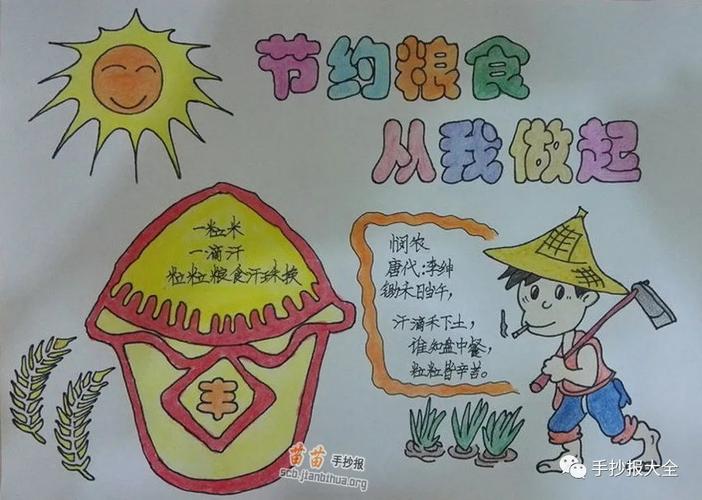 节约粮食
从我做起
一粒米
一滴汗
粒粒粮食汗珠换
丰
悯农
唐代:李绅
锄禾日当午,
汗滴禾下土,
谁知盘中餐,
粒粒皆辛苦。
苗苗手抄报
scb.jianbihua.org
手抄报大全